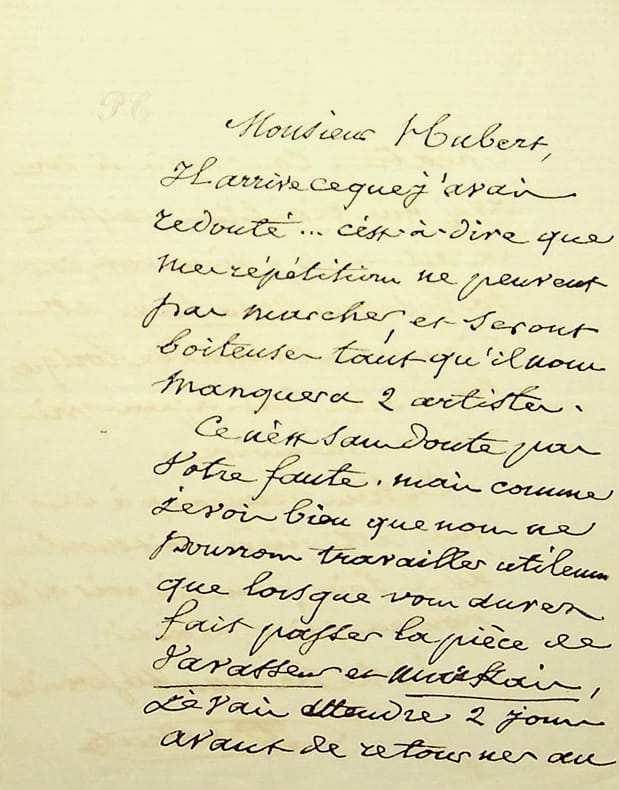 Monsieur Hubert,
Il arrive ce que j'avais
redouté... c'est-à-dire que
mes répétitions ne peuvent
pas marcher, et seront
boiteuses tant qu'il nous
manquera 2 artistes.
Ce n'est sans doute pas
votre faute. mais comme
je vois bien que nous ne
pourrons travailler utilement
que lorsque vous aurez
fait passer la pièce de
et
je vais attendre 2 jours
avant de retourner au